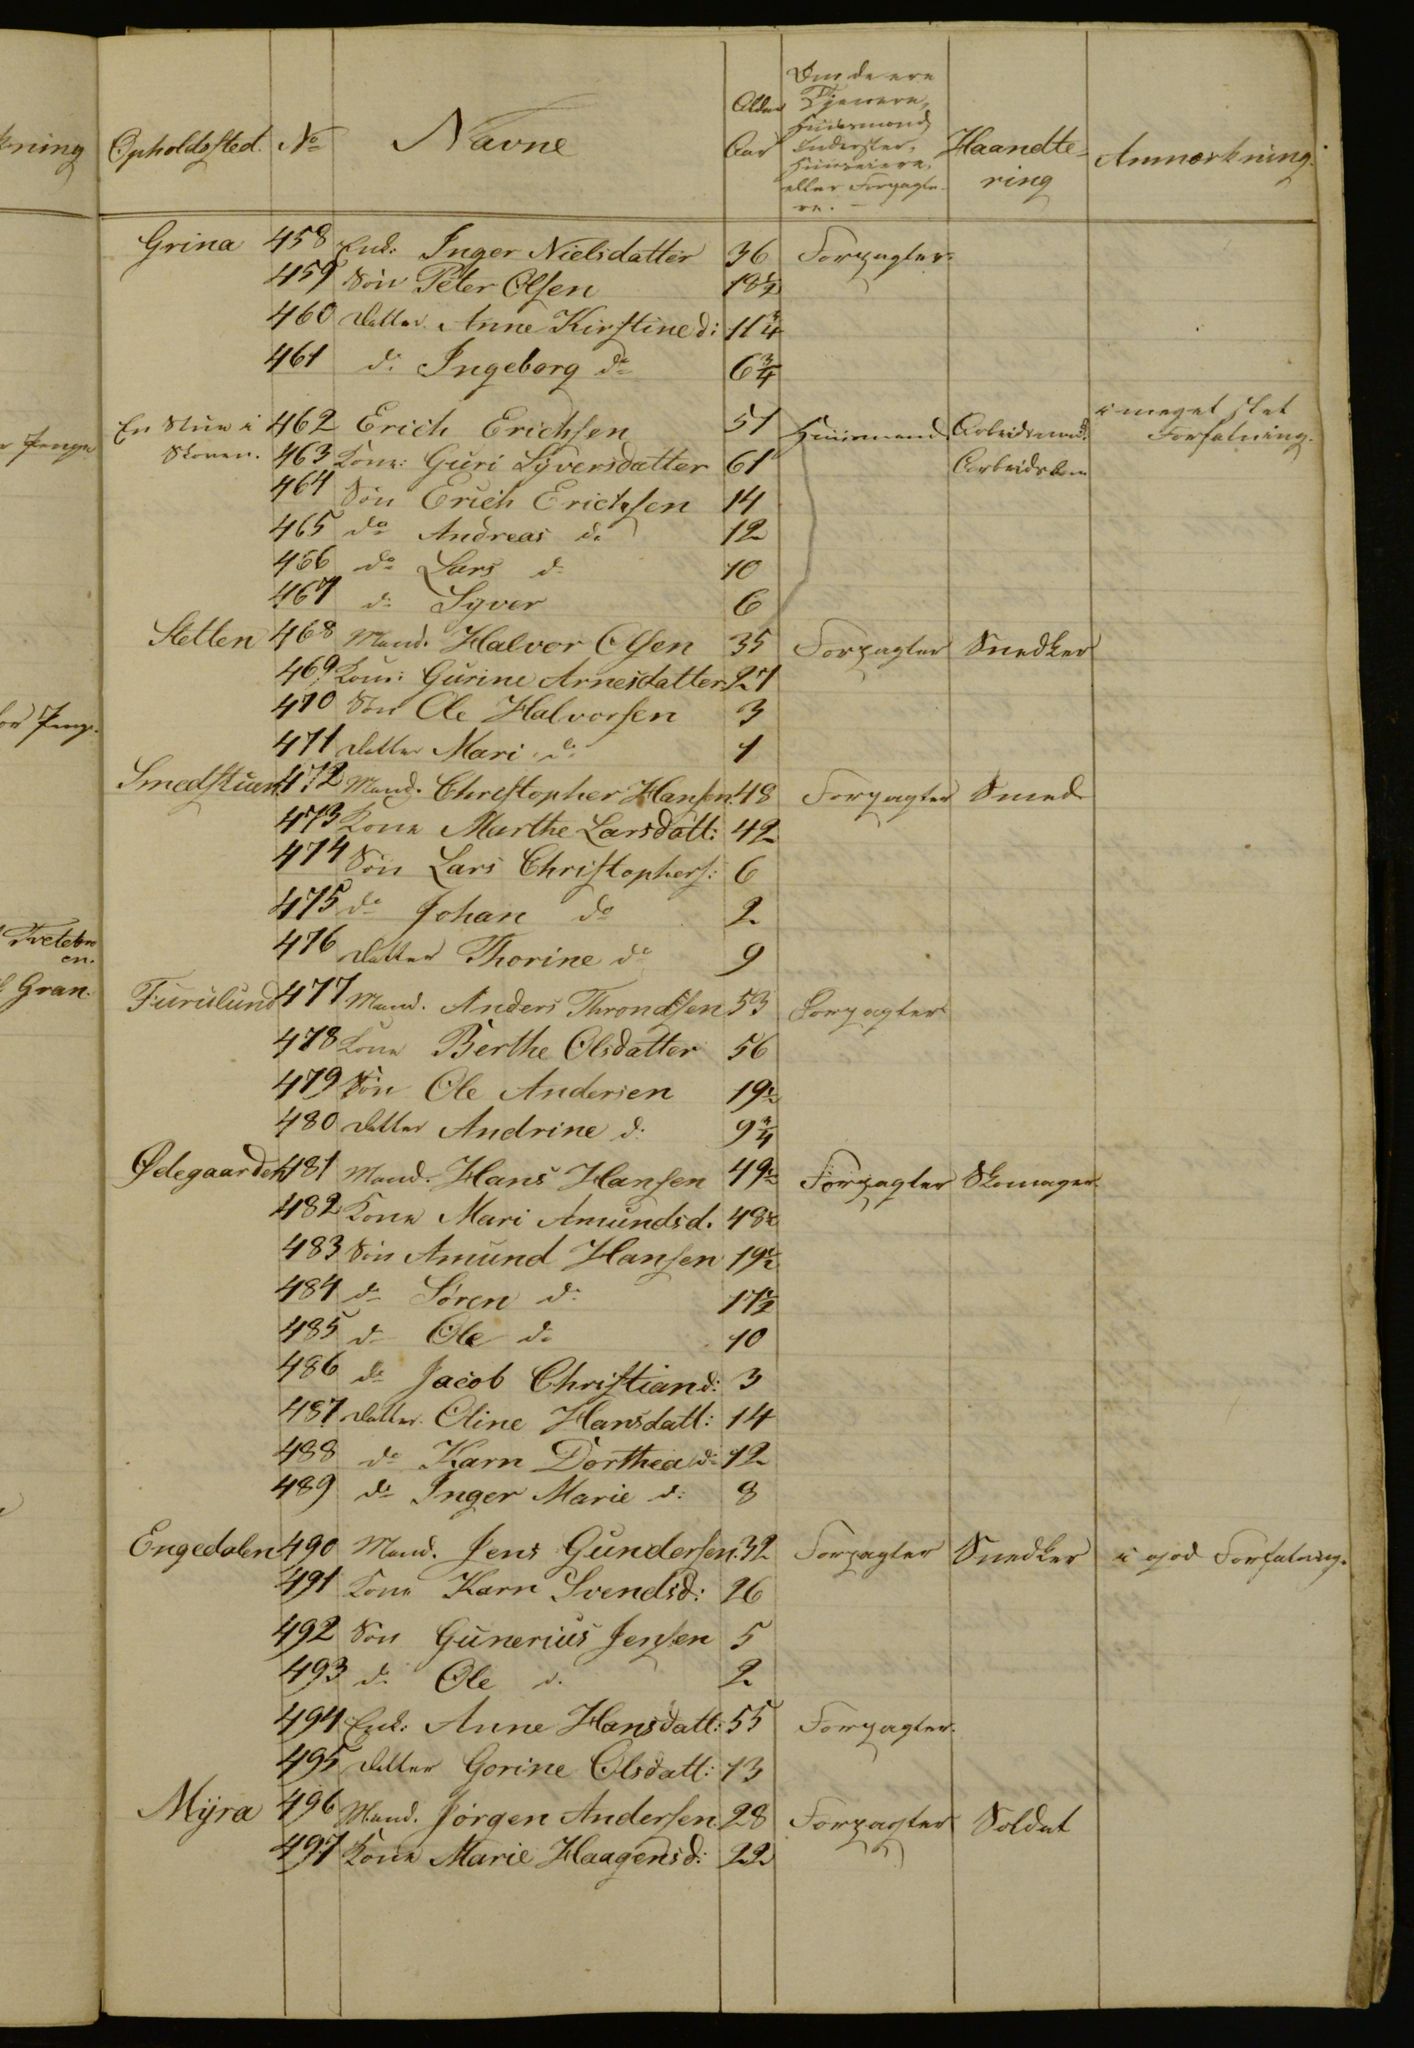 Opholdssted. No Navne Alder Aar Om de ere Tjenere, Huusmænd, Inderster, Huuseiere, eller Forpagtere. Haandtering Anmærkning.
Grina 458 Enk: Inger Nielsdatter 36 Forpagter.
459 Søn Peter Olsen 18½
460 Datter Anne Kirstine do: 11¾
461 do Ingeborg do 6¾
En Stue i 462 Erich Erichsen 51 Huusmand Arbeidsmand. i meget slet
Skoven. 463 Kone: Guri Syversdatter 61 Forfatning.
464 Søn Erich Erichsen 14
465 do Andreas do 12
466 do Lars do 10
467 do Syver 6
468 Mand. Halvor Olsen 35 Forpagter Snedker
469 Kone: Gurine Arnesdatter 27
470 Søn Ole Halvorsen 3
471 Datter Mari do 1
Smedstuen 472 Mand. Christopher Hansen 48 Forpagter Smed
473 Kone Marthe Larsdatt: 42
474 Søn Lars Christophers: 6
475 do Johan do 2
476 Datter Thorine do 9
Furulund 477 Mand. Anders Throndsen 53 Forpagter
478 Kone Berthe Olsdatter 56
479 Søn Ole Andersen 19½
480 Datter Andrine do: 9¾
Ødegaarden 481 Mand. Hans Hansen 49½ Forpagter Skomager
482 Kone Mari Amundsd. 48½
483 Søn Amund Hansen 19½
484 do Søren do 17½
485 do Ole do 10
486 do Jacob Christian do: 3
487 Datter. Oline Hansdatt: 14
488 do Karn Dorthea do 12
489 do Inger Marie do: 8
Engedalen 490 Mand. Jens Gundersen. 32 Forpagter Snedker i god Forfatning.
491 Kone Karn Svendsd: 26
492 Søn Gunerius Jensen 5
493 do Ole do 2
494 Enk: Anne Hansdatt: 55 Forpagter.
495 Datter Gorine Olsdatt: 13
Myra 496 Mand. Jørgen Andersen 28 Forpagter Soldat
497 Kone Marie Haagensd: 22